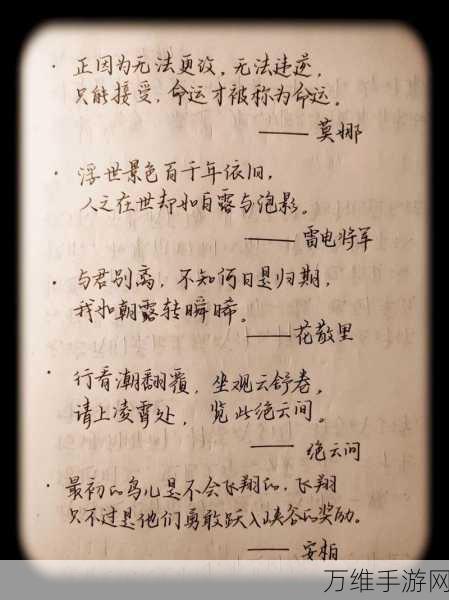 · 正因为无法更改，无法违逆，
只能接受，命运才被称为命运。
—— 莫娜
· 浮世景色百千年依旧，
人之在世却如白露与泡影。
—— 雷电将军
· 与君别离，不知何日是归期，
我如朝露转瞬晞。
—— 花散里
· 行看潮翻覆，坐观云舒卷，
请上凌霄处，览此绝云间。
—— 绝云间
· 最初的鸟儿是不会飞翔的，飞翔
只不过是他们勇敢跃入峡谷的奖励。
—— 安柏
万维手游网